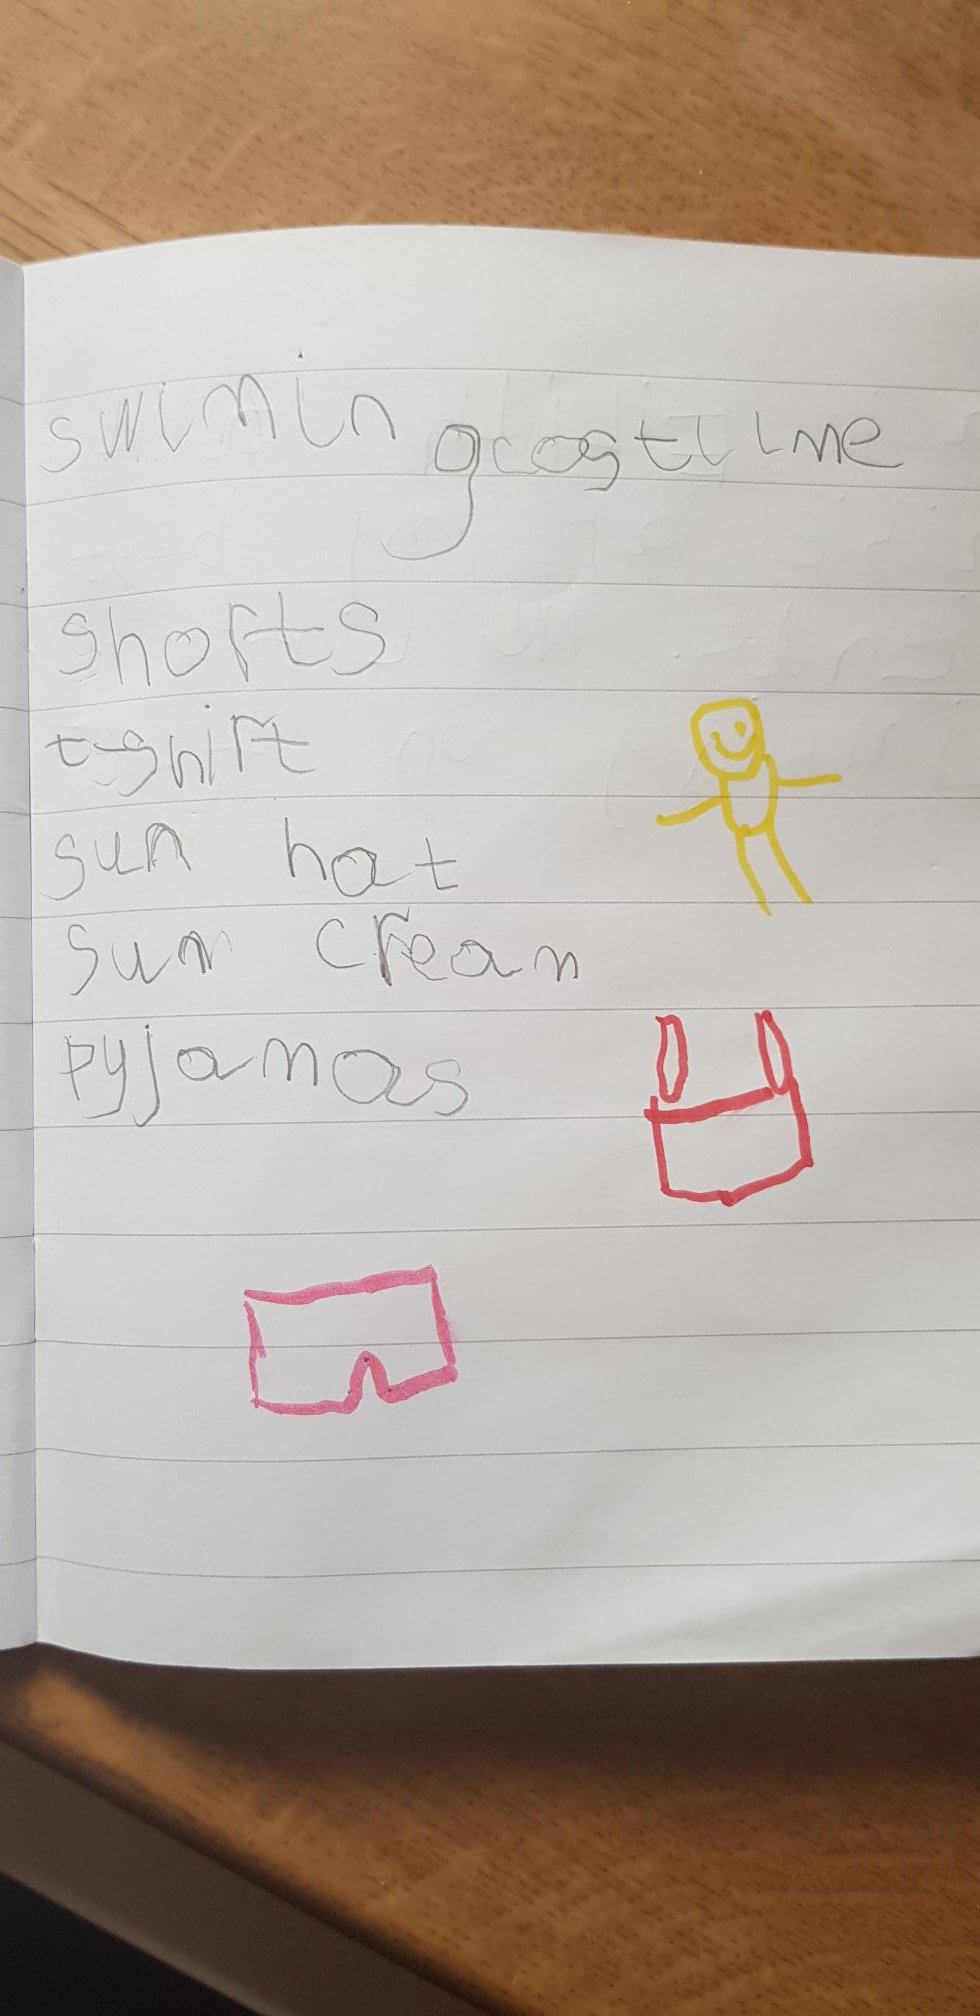 swimin gcostume
shorts
t-shirt
sun hat
sun cream
pyjamas